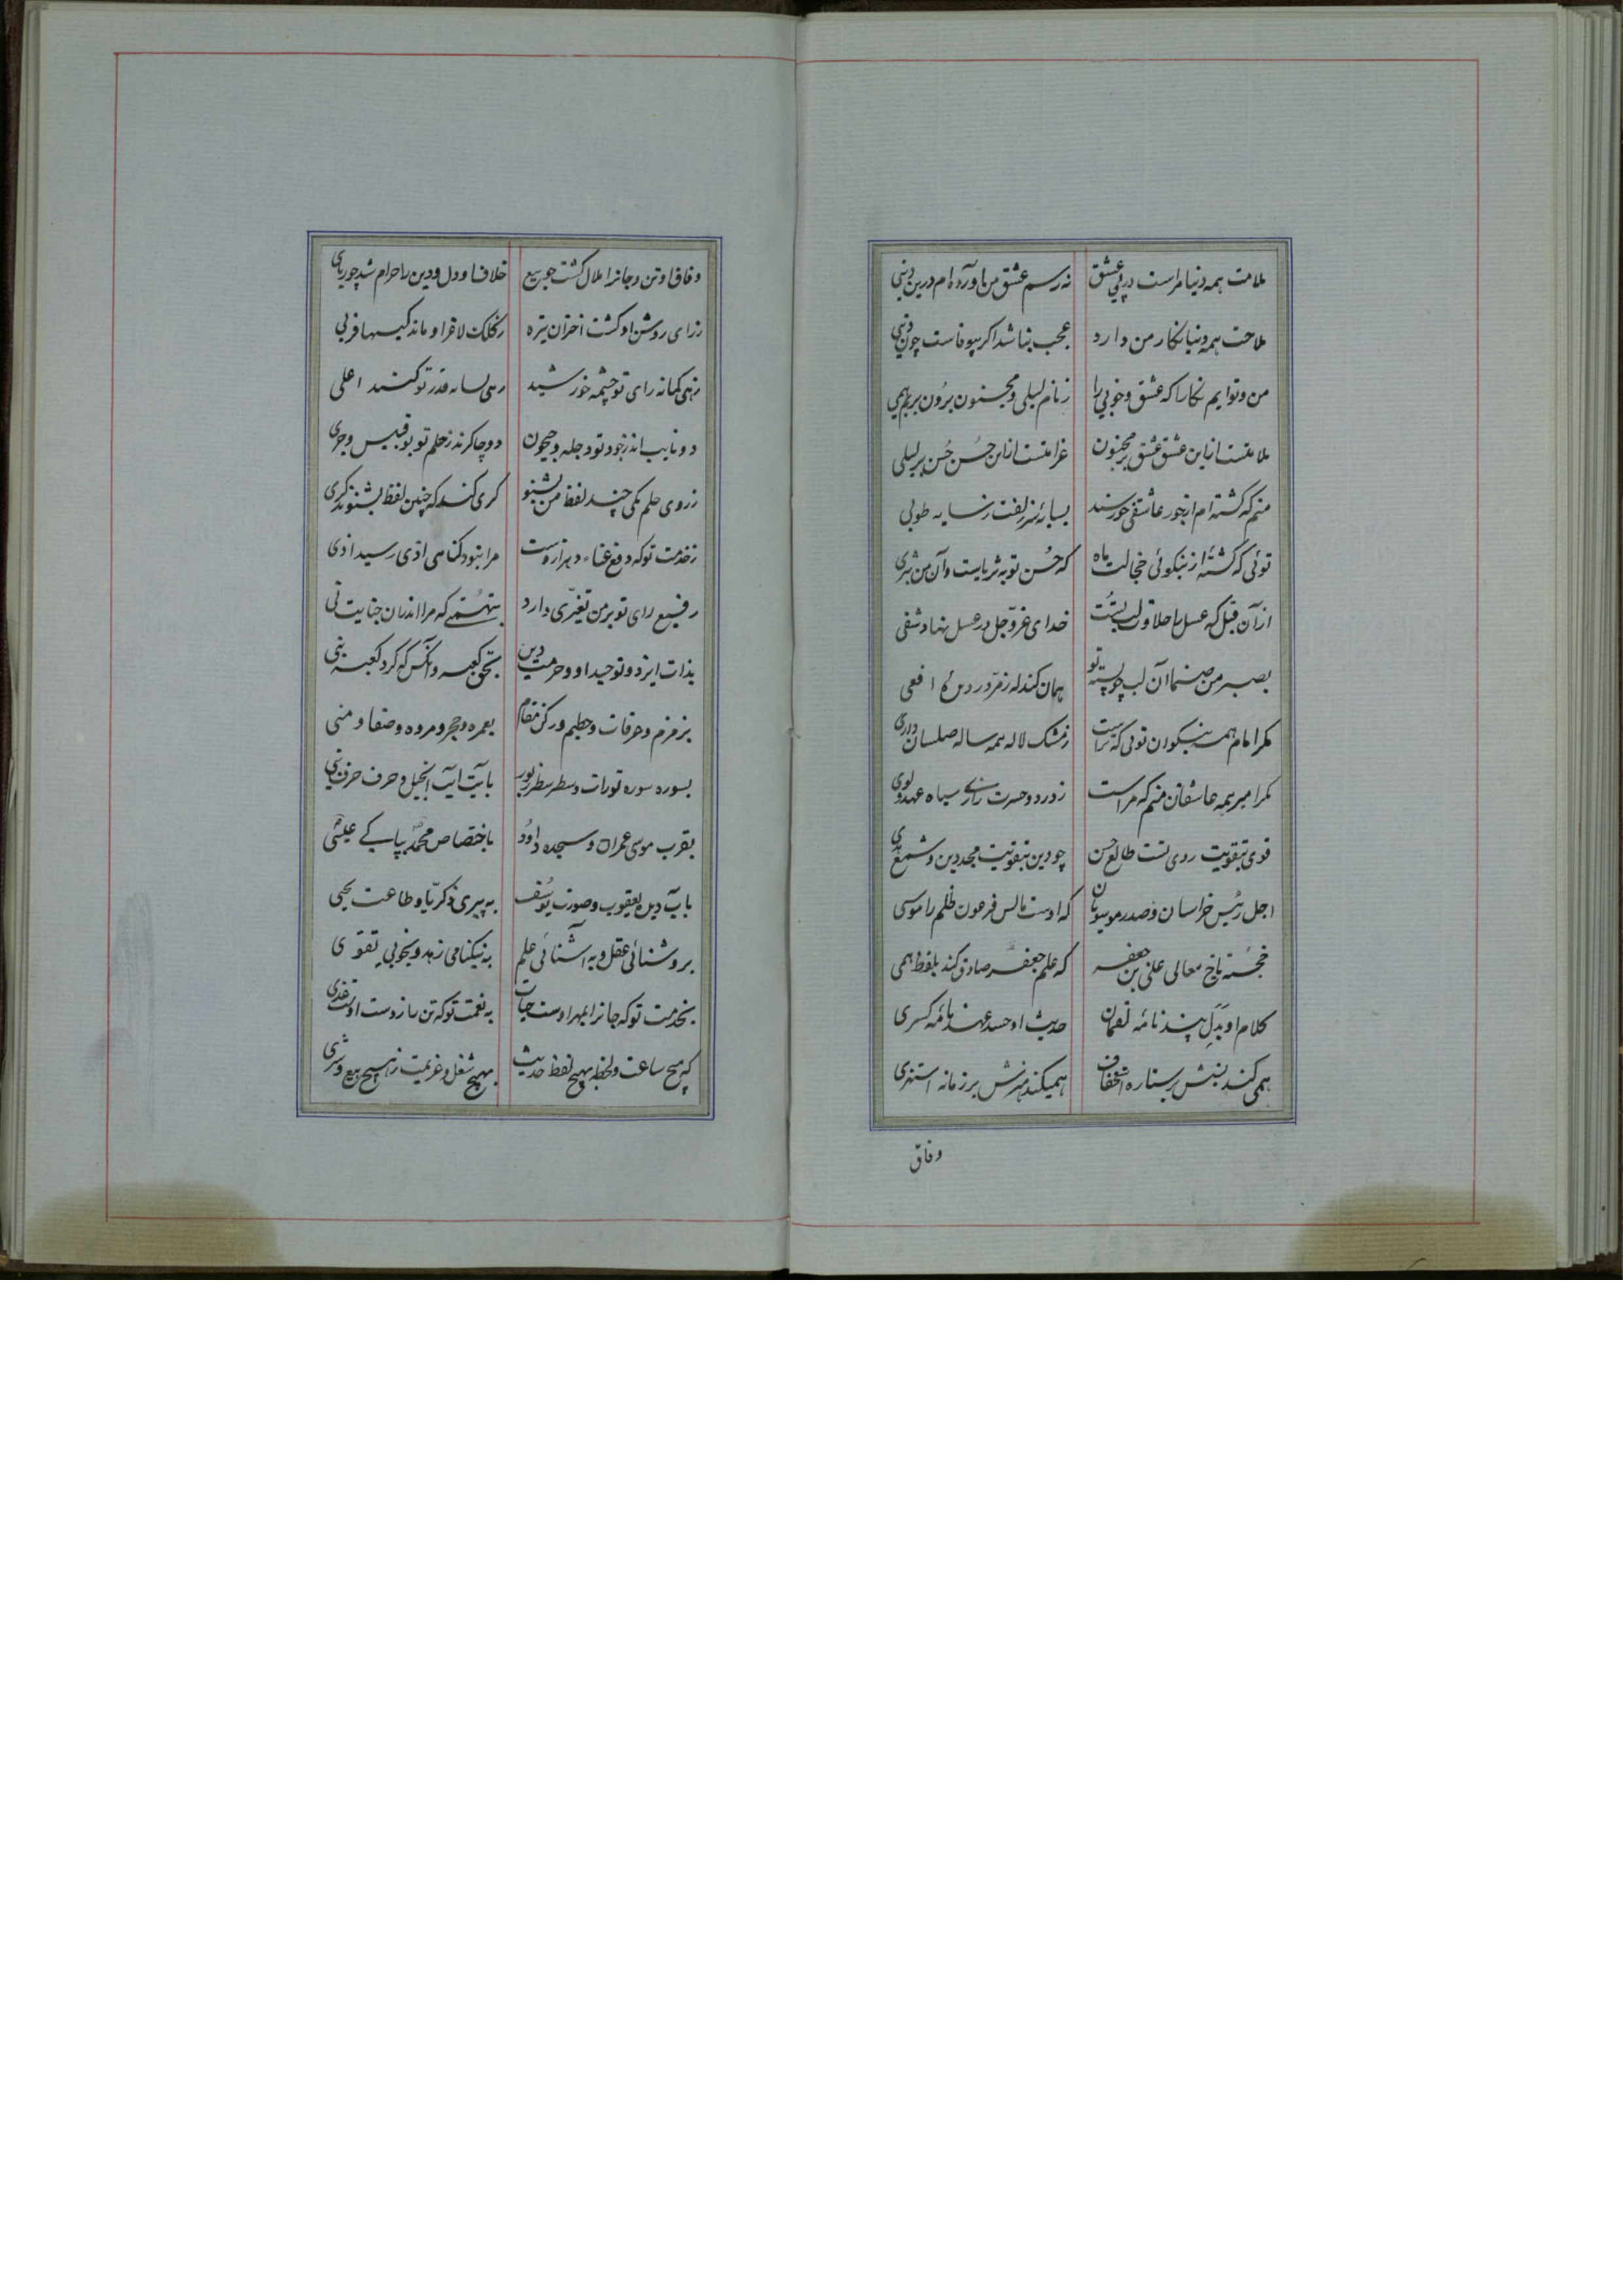 ملامت همه دنیا مراست در پی عشق نه رسم عشق من آورده‌ام درین دنیی
ملاحت همه دنیا نکار من دارد عجب نباشد اگر بیوفاست چون دنیی
من و توایم نکارا که عشق و خوبی را ز نام لیلی و مجنون برون بریم همی
ملامتست ازین عشق عشق بر مجنون غرامتست ازین حسن حسن بر لیلی
منم که کشته‌ام از جور عاشقی خورسند بسایهٔ سر زلفت ز سایه طوبی
توئی که کشتهٔ از نیکوئی خجالت ماه که حسن تو به ثریاست و آن من بثری
از آن قبل که عسل را حلاوت لب تست خدای عزوجل در عسل نهاد شفی
بصبر من صنما آن لب چو بسته تو همان کند که زمرد در دیده افعی
مکر امام همه نیکوان توئی که تراست ز مشک لاله همه ساله طیلسان داری
مکر امیر همه عاشقان منم که مراست ز درد و حسرت سیاه عهد و لوی
قوی بتقویت روی تست طالع حسن چو دین بتقویت مجد دین و شمع هدی
اجل رئیس خراسان و صدر موسویان که اوست مالش فرعون ظلم را موسی
خجسته تاج معالی علی بن جعفر که علم جعفر صادق کند بلفظ همی
کلام او بدل پندنامه لقمان حدیث او حسد عهدنامه کسری
همی کند بنبش بر ستاره استخفاف همیکند هنرش بر زمانه استهزی
وفاق
وفاق او تن و جانرا حلال کشت چو بیع خلاف او دل و دین را حرام شد چو ربای
ز رای روشن او کشت اختران تیره ز کلک لاغر او ماند کیسها فربی
زهی کمانه رای تو چشمه خورشید زهی بسایه قدر تو کنبد اعلی
دو نایب‌اند ز جود تو دجله و جیحون دو چاکرند ز حلم تو بوقبیس و حری
ز روی حلم یکی چند لفظ من بشنو کری کند که چنین لفظ بشنوند کری
ز خدمت تو که دفع عناء دهر ازوست مرا نبود کناهی اذی رسید اذی
رفیع رای تو بر من تغیری دارد بتهمتی که مرا اندر آن جنایت نی
بذات ایزد و توحید او و حرمت دین بحق کعبه و آنکس که کرد کعبه بنی
بزمزم و عرفات و حطیم و رکن و مقام بعمره و حجر و مروه و صفا و منی
بسوره سوره تورات و سطر سطر زبور بآیت آیت انجیل و حرف حرف نبی
بقرب موسی عمران و سجده داود باختصاص محمد بپاکی عیسی
بآب دیده یعقوب و صورت یوسف به پیری زکریا و طاعت یحیی
بروشنائی عقل و به آشنائی علم به نیکنامی زهد و بخوبی تقوی
بخدمت تو که جانرا بمهر اوست حیات به نعمت تو که تن را ز دوست اوست غذی
که هیچ ساعت و لحظه بهیچ لفظ حدیث بهیچ شغل و عزیمت ز هیچ بیع و شری